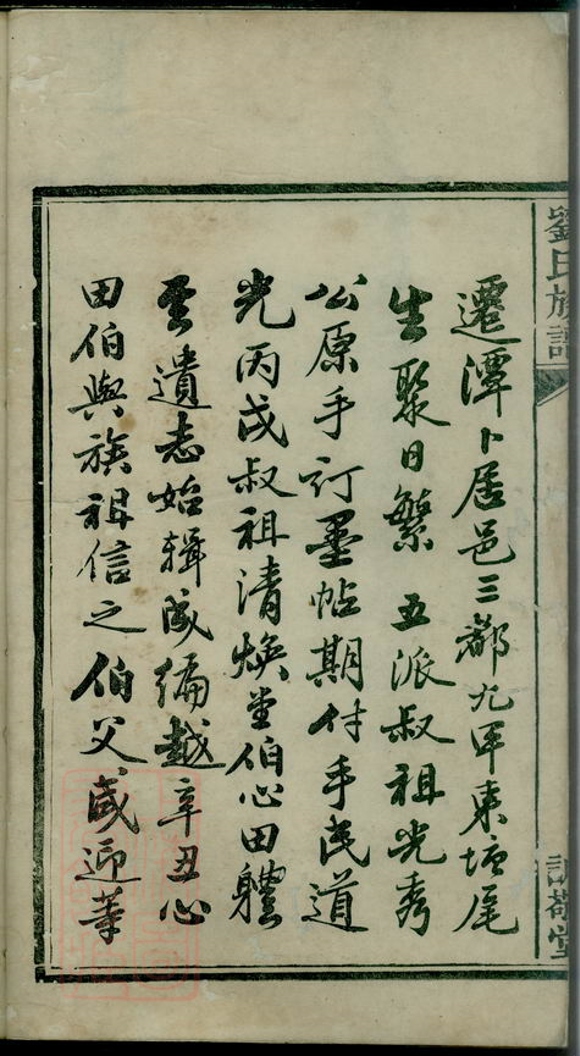 劉氏族譜
遷潭卜居邑三都九甲東塘尾
生聚日繁五派叔祖光秀
公原手訂墨帖期付手民道
光丙戌叔祖清煥堂伯心田體
至遺志始輯成編越辛丑心
田伯與族祖信之伯父咸迎等
敬堂